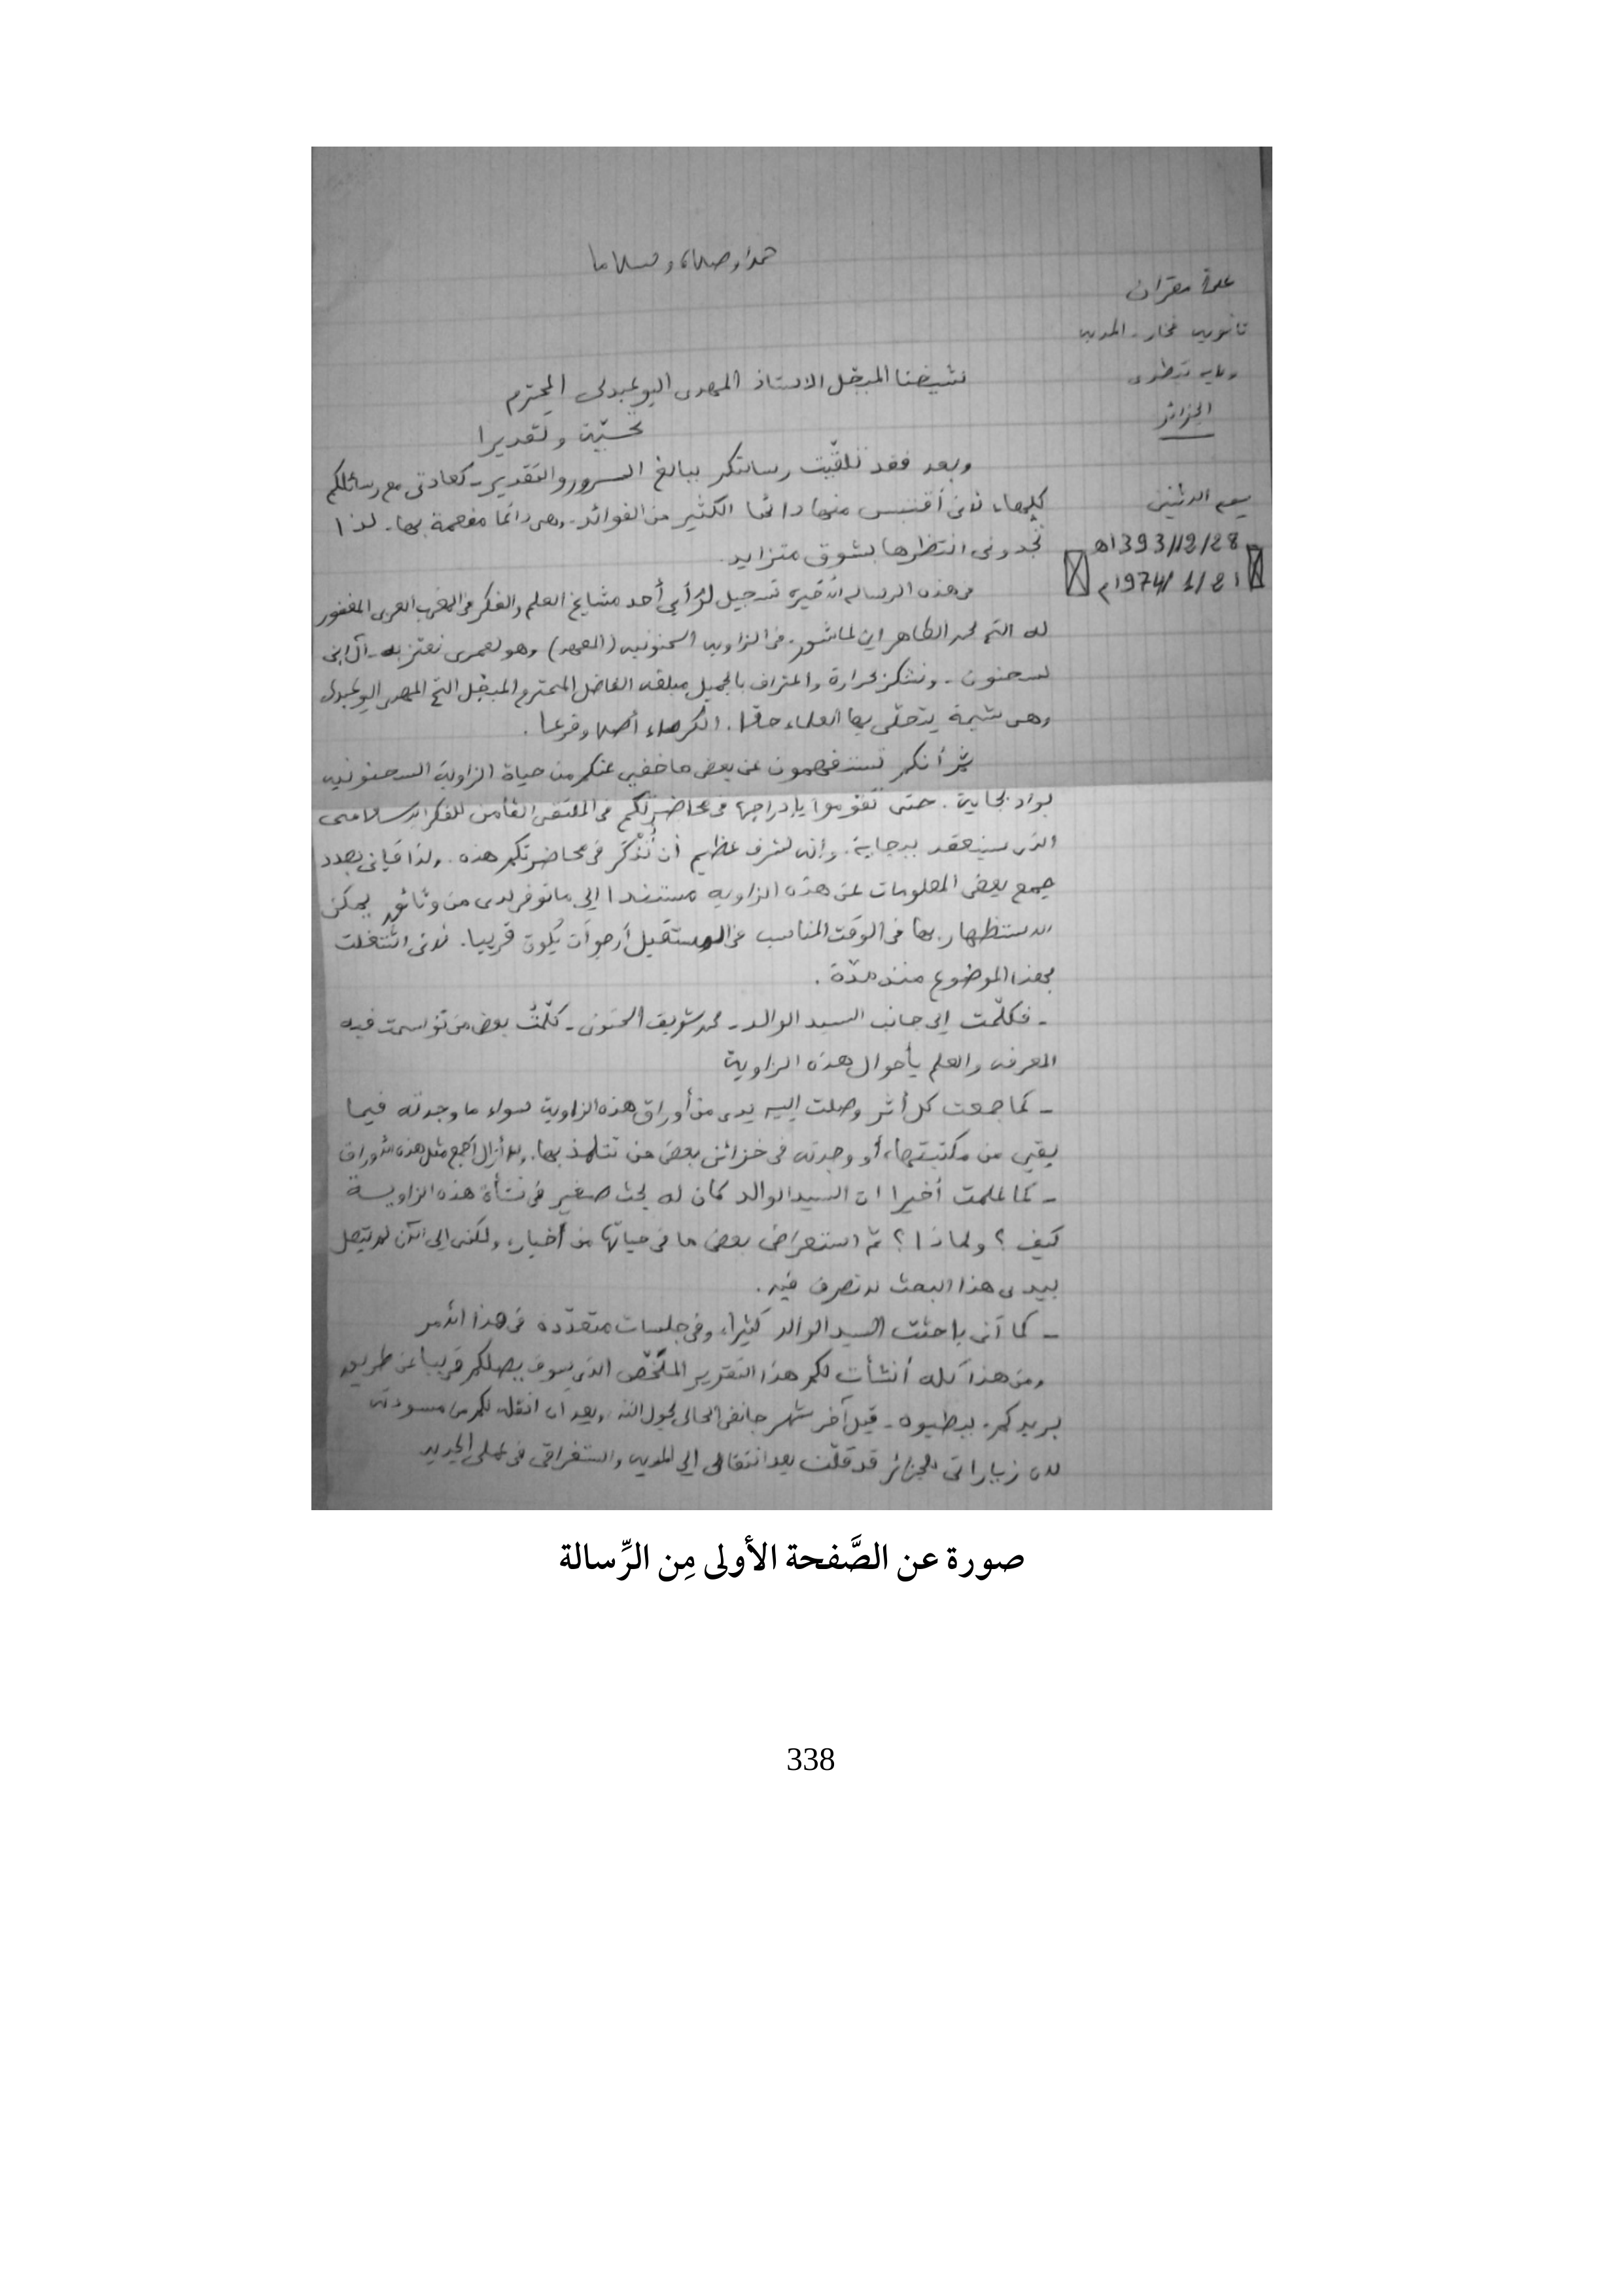 حمدا وصلاة وسلاما
علاة مقران
ثانوية فخار - المدية
ولاية تيطري
الجزائر
يوم الاثنين
1393/12/28هـ
1974/1/21م
شيخنا المبجّل الاستاذ المهدي البوعبدلي المحترم
تحيّة وتقديرا
وبعد فقد تلقّيت رسالتكم ببالغ السرور والتقدير - كعادتي مع رسائلكم
كلها، لأني أقتبس منها دائما الكثير من الفوائد - وهي دائما مفعمة بها. لذا
تجدوني انتظرها بشوق متزايد.
في هذه الرسالة الأخيرة تسجيل لرأي أحد مشايخ العلم والفكر في المغرب العربي المغفور
له الشيخ محمد الطاهر ابن عاشور - في الزاوية السحنونية (المعهد) وهو لعمري نعتز به - آل ابي
سحنون - ونشكر بحرارة واعتراف بالجميل مبلغه الفاضل المحترم المبجّل الشيخ المهدي البوعبدلي
وهي شيمة يتحلّى بها العلماء حقا. الكرماء أصلا وفرعا.
ثم أنكم تستفهمون عن بعض ما خفي عنكم من حياة الزاوية السحنونية
بواد بجاية. حتى تقوموا بإدراجها في محاضرتكم في الملتقى الثامن للفكر الاسلامي
الذي سينعقد ببجاية. وإنه لشرف عظيم أن نُذْكَر في محاضرتكم هذه. ولذا فإني بصدد
جمع بعض المعلومات عن هذه الزاوية مستندا الى ما توفر لدي من وثائق يمكن
الاستظهار بها في الوقت المناسب في المستقبل أرجو أن يكون قريبا. لأني اشتغلت
بهذا الموضوع منذ مدّة.
- فكلّمت الى جانب السيد الوالد - محمد شريف الحسني - كلّمت بعض من توسمت فيه
المعرفة والعلم بأحوال هذه الزاوية
- كما جمعت كل أثر وصلت إليه يدي من أوراق هذه الزاوية سواء ما وجدته فيما
بقي من مكتبتها، أو وجدته في خزائن بعض من تتلمذ بها. ولا أزال أجمع مثل هذه الأوراق
- كما علمت أخيرا ان السيد الوالد كان له بحث صغير في نشأة هذه الزاوية
كيف؟ ولماذا؟ ثم استعراض بعض ما في حياتها من أخبار، ولكني الى الآن لم يتصل
بيدي هذا البحث لا تصرف فيه.
- كما أني باحثت السيد الوالد كثيرا، وفي جلسات متعدّدة في هذا الأمر
ومن هذا كله أنشأت لكم هذا التقرير الملخّص الذي سوف يصلكم قريبا عن طريق
بريدكم. ببطيوه - قبل آخر شهر جانفي الحالي بحول الله وبعد ان انقله لكم من مسودته
لان زياراتي للجزائر قد قلّت بعد انتقالي الى المدية واستغراقي في عملي الجديد
صورة عن الصَّفحة الأولى مِن الرِّسالة
338